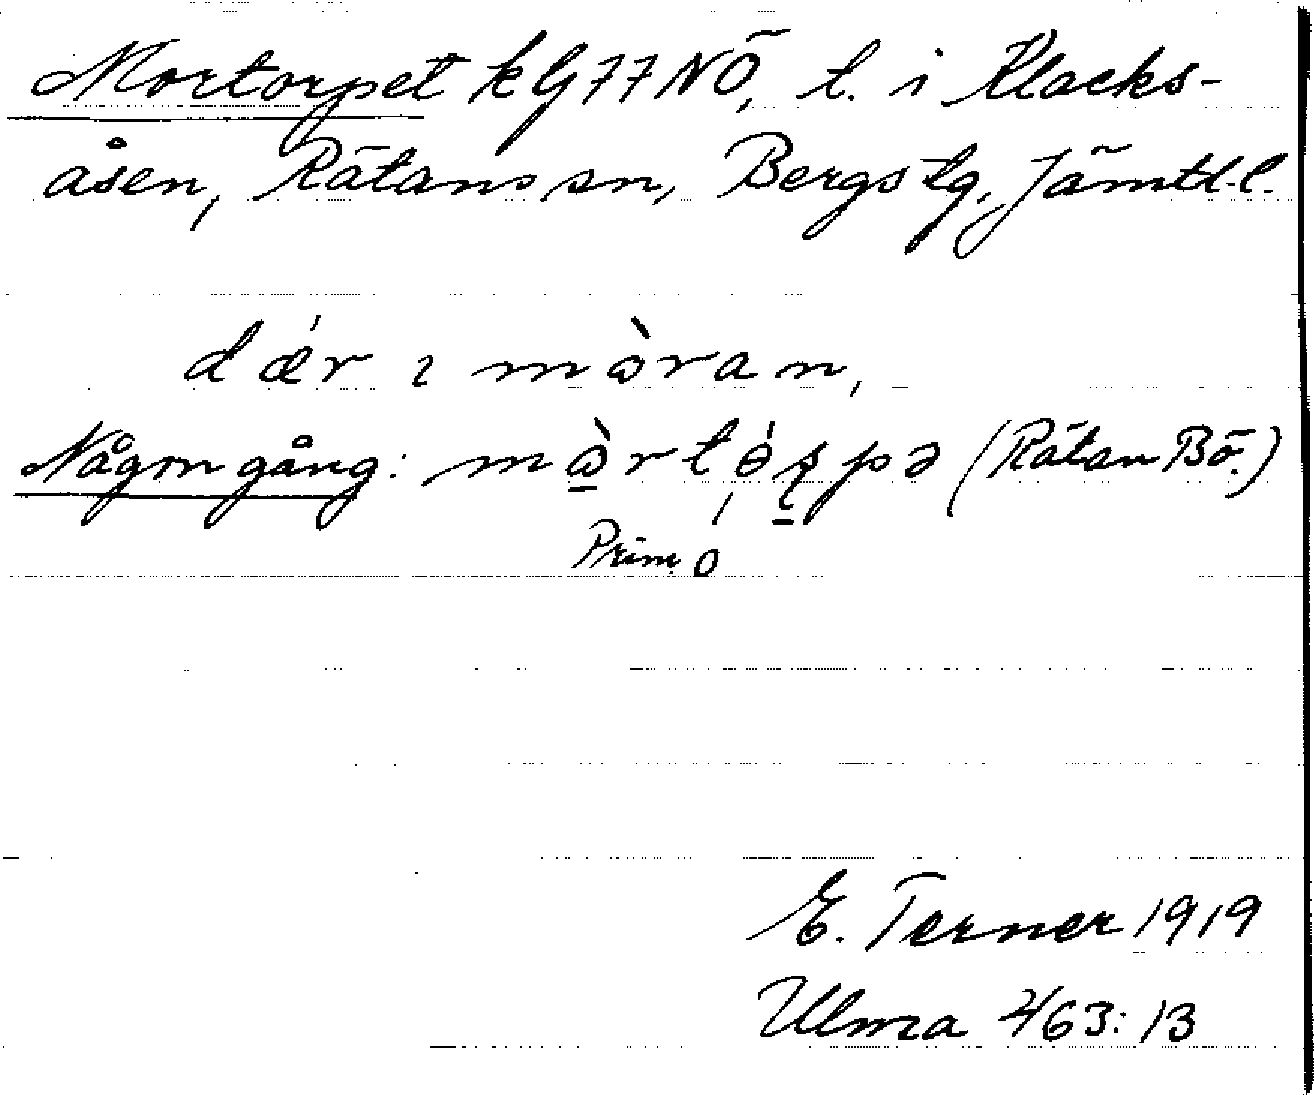 Mortorpet k G 77 NÖ, t. i Klacks-
åsen, Rätans sn, Bergs tg, Jämtl. l.
dǽr ı mòran,
Någon gång: mòrtɵ́rpə (Rätan Bö.)
Prim. o
E. Terner 1919
Ulma 463:13